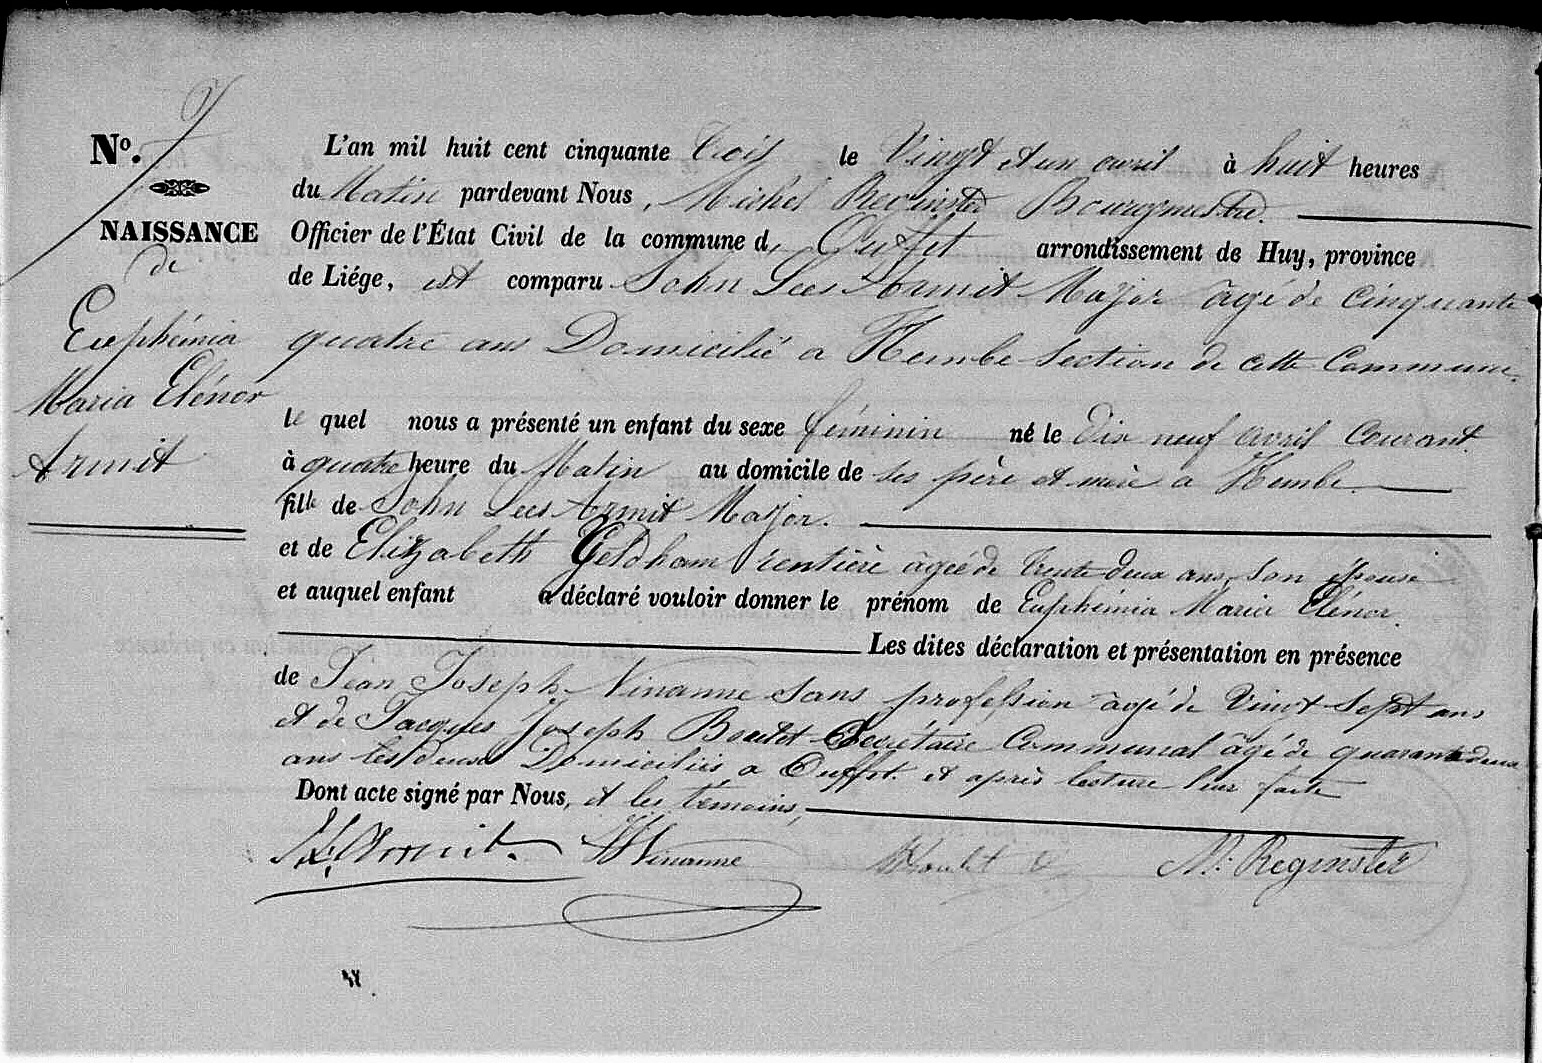 No. 7
NAISSANCE
de
Euphémia
Maria Elénor
Armit
L'an mil huit cent cinquante trois le Vingt et un avril à huit heures
du Matin pardevant Nous, Michel Reginster Bourgmestre.
Officier de l'État Civil de la commune d, Ouffet arrondissement de Huy, province
de Liége, est comparu John Lees Armit Major âgé de Cinquante
quatre ans Domicilié a Hembe section de cette Commune.
le quel nous a présenté un enfant du sexe féminin né le Dix neuf avril Courant.
à quatre heure du Matin au domicile de ses père et mère a Hembe.
fille de John Lees Armit Major.
et de Elizabeth Geldham rentière âgée de trente deux ans, son épouse
et auquel enfant a déclaré vouloir donner le prénom de Euphémia Maria Elénor.
Les dites déclaration et présentation en présence
de Jean Joseph Ninanne sans profession âgé de Vingt Sept ans
et de Jacques Joseph Boulet Secrétaire Communal âgé de quarante deux
ans les deux Domiciliés a Ouffet. et après lecture leur faite
Dont acte signé par Nous, et les témoins,
J. L. Armit. JJNinanne Boulet M. Reginster